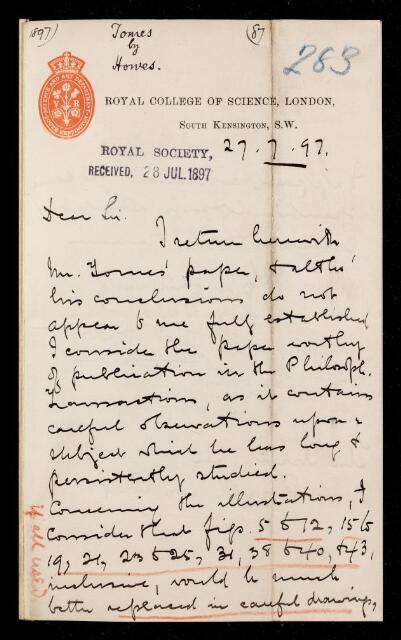 1897)
Tomes
by
Howes.
(87
263
SCIENCE AND ART DEPARTMENT
SOUTH KENSINGTON
V R
ROYAL COLLEGE OF SCIENCE, LONDON,
SOUTH KENSINGTON, S.W.
ROYAL SOCIETY,
RECEIVED, 28 JUL.1897
27.7.97.
Dear Sir.
I return herewith
Mr. Tomes' paper, & altho'
his conclusions do not
appear to me fully established
I consider the paper worthy
of publication in the Philosoph.
Transactions, as it contains
careful observations upon a
subject which he has long &
persistently studied.
Concerning the illustrations, I
consider that figs. 5 to 12, 15 to
19, 21, 23 to 25, 31, 38 to 40, & 43,
inclusive, would be much
better replaced in careful drawings,
if all used